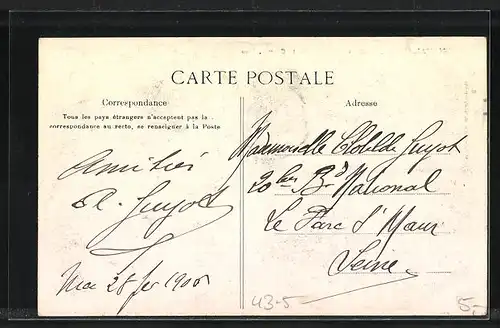 CARTE POSTALE
Correspondance
Tous les pays étrangers n'acceptent pas la
correspondance au recto, se renseigner à la Poste
Adresse
Amitiés
Guyot
28
Mademoiselle Clotilde Guyot
20 bis Bd National
Le Parc St Maur
Seine
43-5
5-